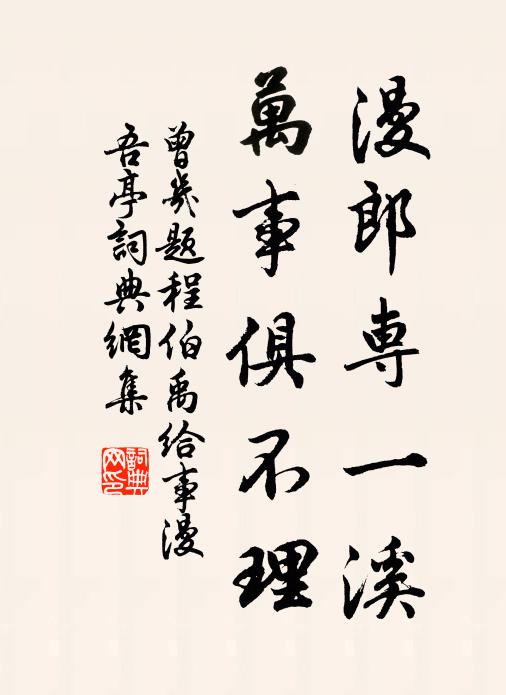 漫郎専一溪
萬事俱不理
曾幾題程伯禹給事漫
吾亭詞典網集
詞典網印